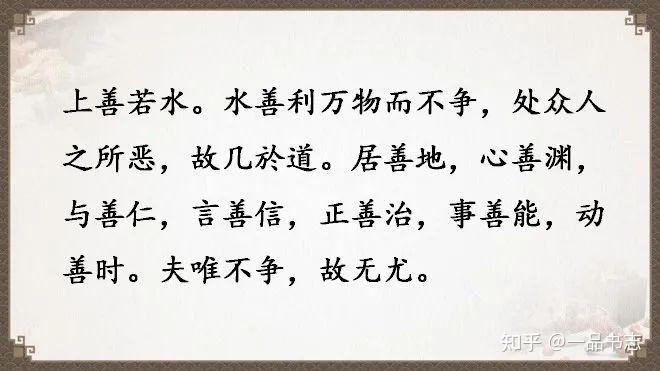 上善若水。水善利万物而不争，处众人
之所恶，故几於道。居善地，心善渊，
与善仁，言善信，正善治，事善能，动
善时。夫唯不争，故无尤。
知乎 @一品书志